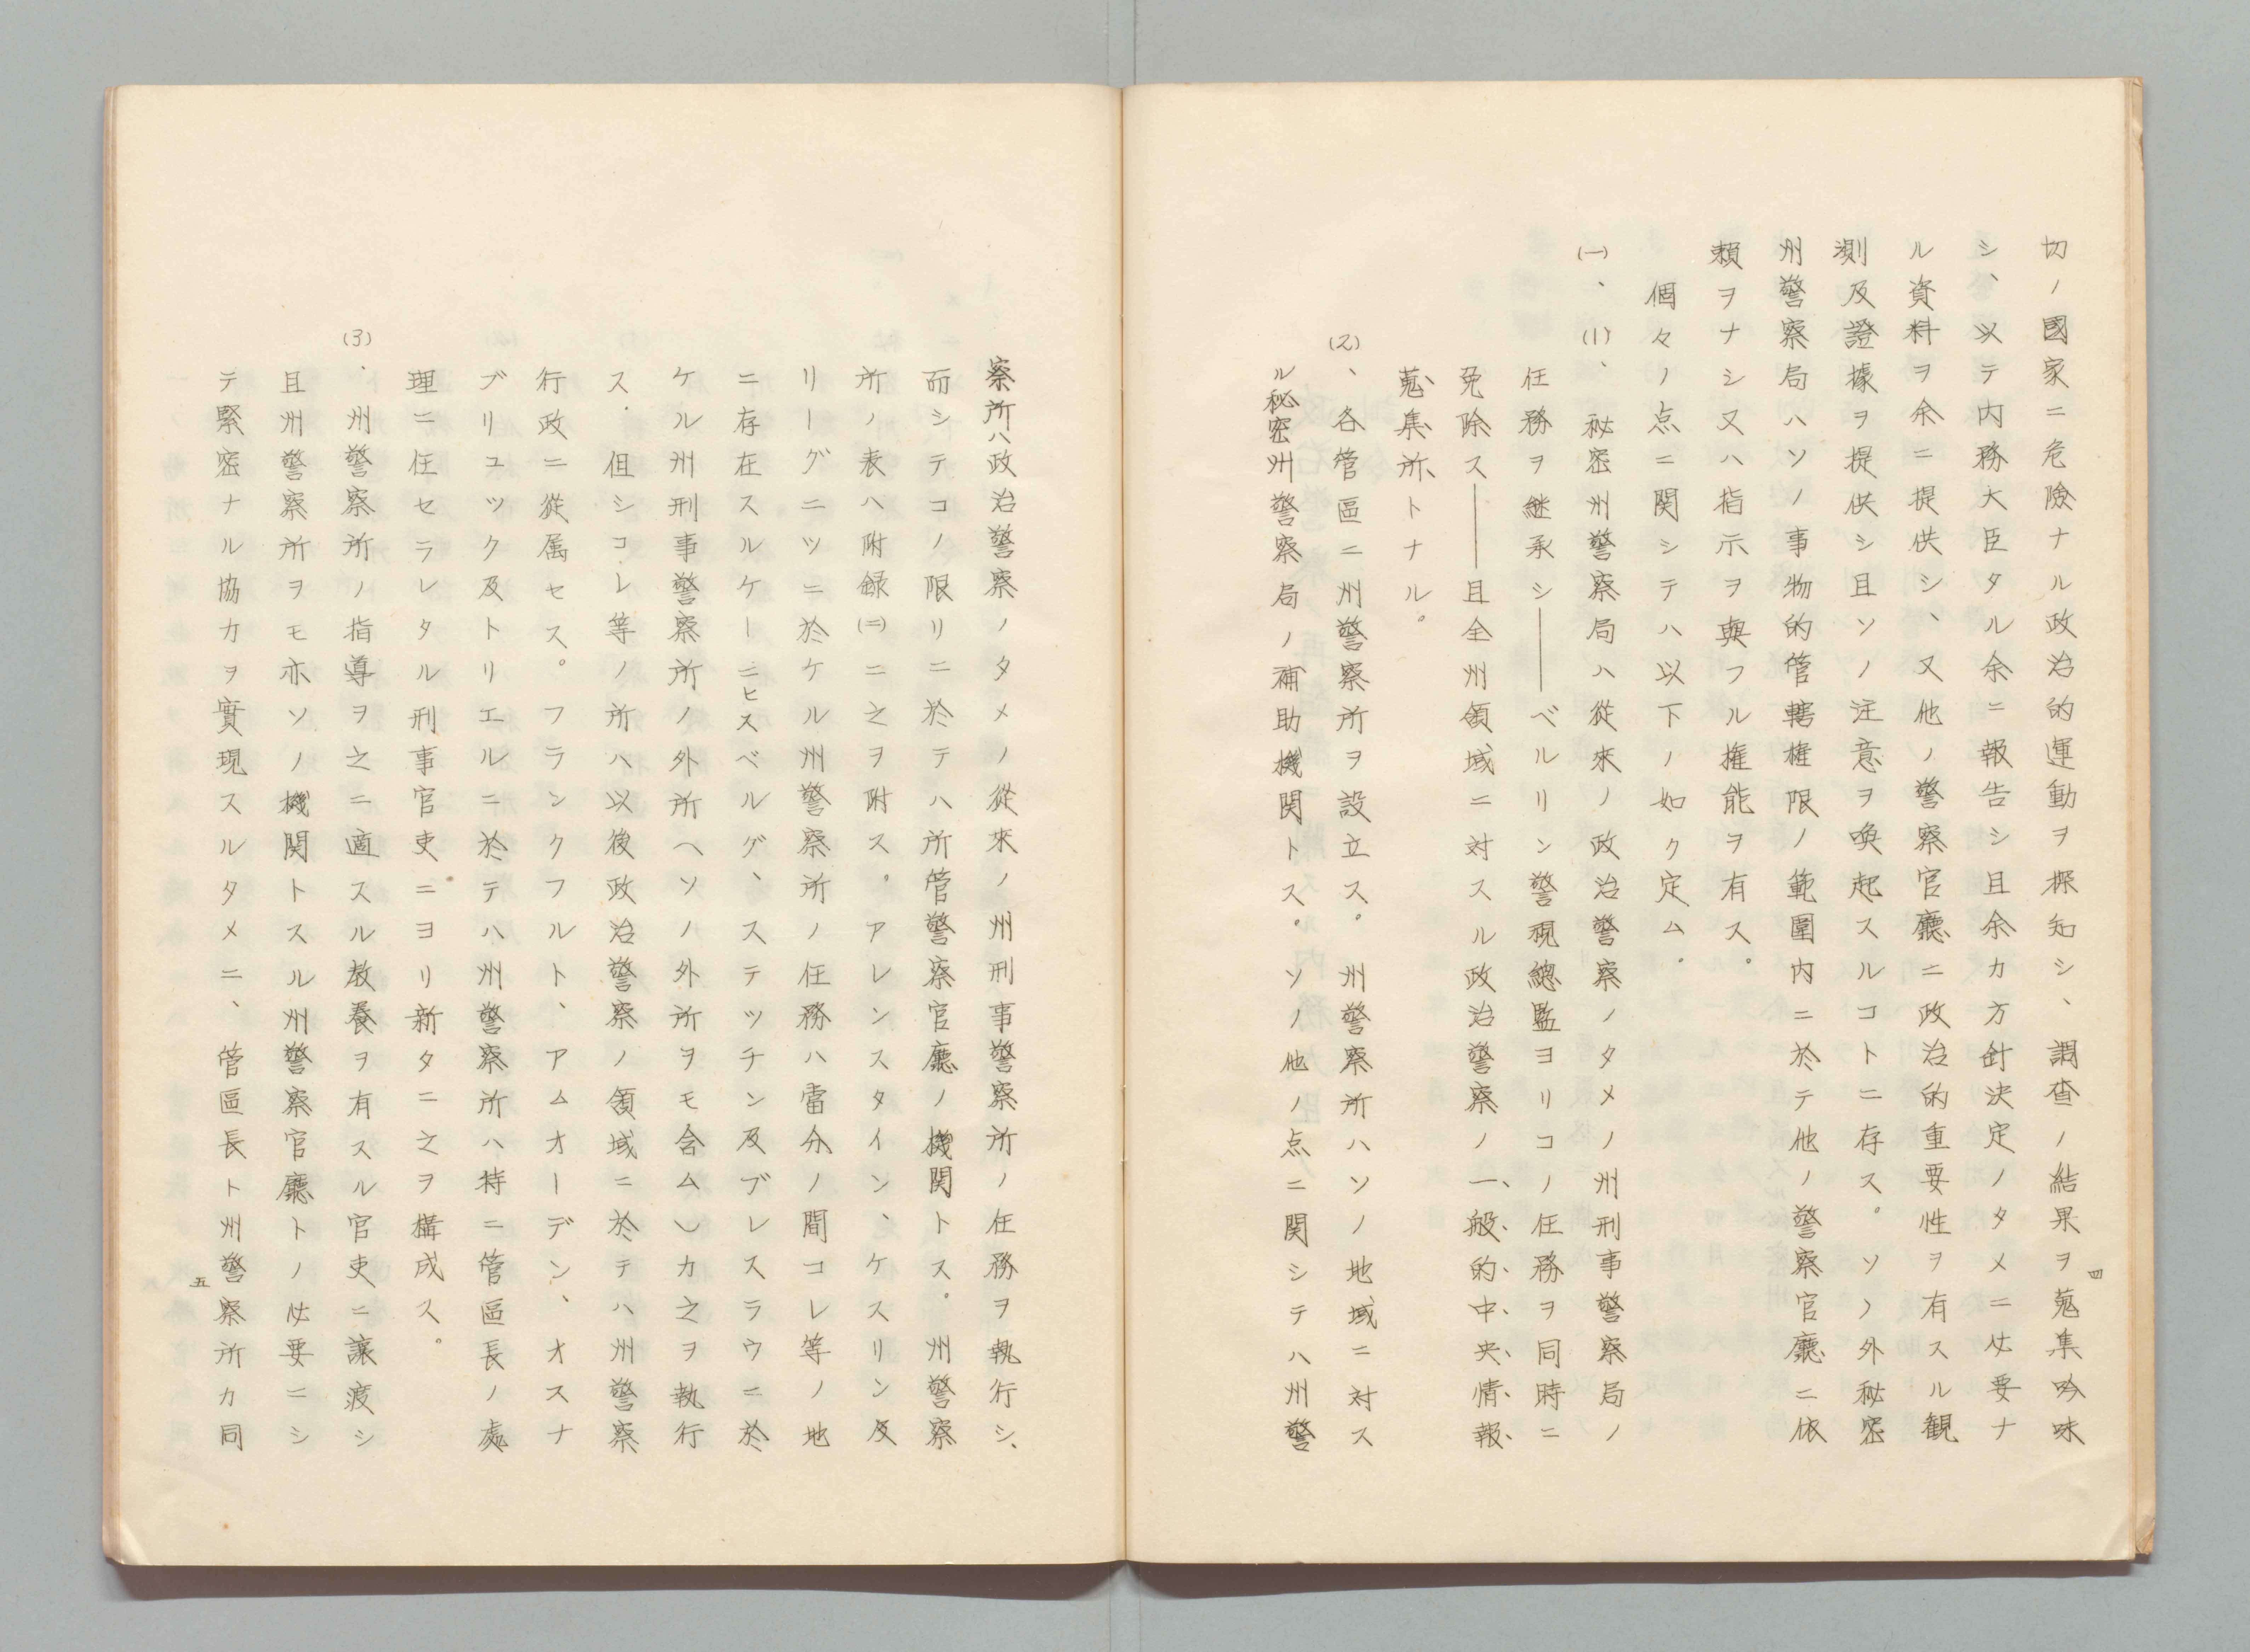 切ノ國家ニ危險ナル政治的運動ヲ探知シ、調査ノ結果ヲ蒐集吟味
シ、以テ内務大臣タル余ニ報告シ且余カ方針決定ノタメニ必要ナ
ル資料ヲ余ニ提供シ、又他ノ警察官廳ニ政治的重要性ヲ有スル観
測及證據ヲ提供シ且ソノ注意ヲ喚起スルコトニ存ス。ソノ外秘密
州警察局ハソノ事物的管轄権限ノ範圍内ニ於テ他ノ警察官廳ニ依
頼ヲナシ又ハ指示ヲ與フル権能ヲ有ス。
個々ノ点ニ関シテハ以下ノ如ク定ム。
(一)、(1)、秘密州警察局ハ從來ノ政治警察ノタメノ州刑事警察局ノ
任務ヲ継承シ――ベルリン警視總監ヨリコノ任務ヲ同時ニ
免除ス――且全州領域ニ対スル政治警察ノ一、般、的、中、央、情、報、
蒐、集、所、トナル。
(2)、各管區ニ州警察所ヲ設立ス。州警察所ハソノ地域ニ対ス
ル秘密州警察局ノ補助機関トス。ソノ他ノ点ニ関シテハ州警
四
察所ハ政治警察ノタメノ從來ノ州刑事警察所ノ任務ヲ執行シ、
而シテコノ限リニ於テハ所管警察官廳ノ機関トス。州警察
所ノ表ハ附録(二)ニ之ヲ附ス。アレンスタイン、ケスリン及
リーグニツニ於ケル州警察所ノ任務ハ當分ノ間コレ等ノ地
ニ存在スルケーニヒスベルグ、ステツチン及ブレスラウニ於
ケル州刑事警察所ノ外所(ソノ外所ヲモ含ム)カ之ヲ執行
ス．但シコレ等ノ所ハ以後政治警察ノ領域ニ於テハ州警察
行政ニ從属セス。フランクフルト、アムオーデン、オスナ
ブリユツク及トリエルニ於テハ州警察所ハ特ニ管區長ノ處
理ニ任セラレタル刑事官吏ニヨリ新タニ之ヲ構成ス。
(3)、州警察所ノ指導ヲ之ニ適スル教養ヲ有スル官吏ニ讓渡シ
且州警察所ヲモ亦ソノ機関トスル州警察官廳トノ必要ニシ
テ緊密ナル協力ヲ實現スルタメニ、管區長ト州警察所カ同
五